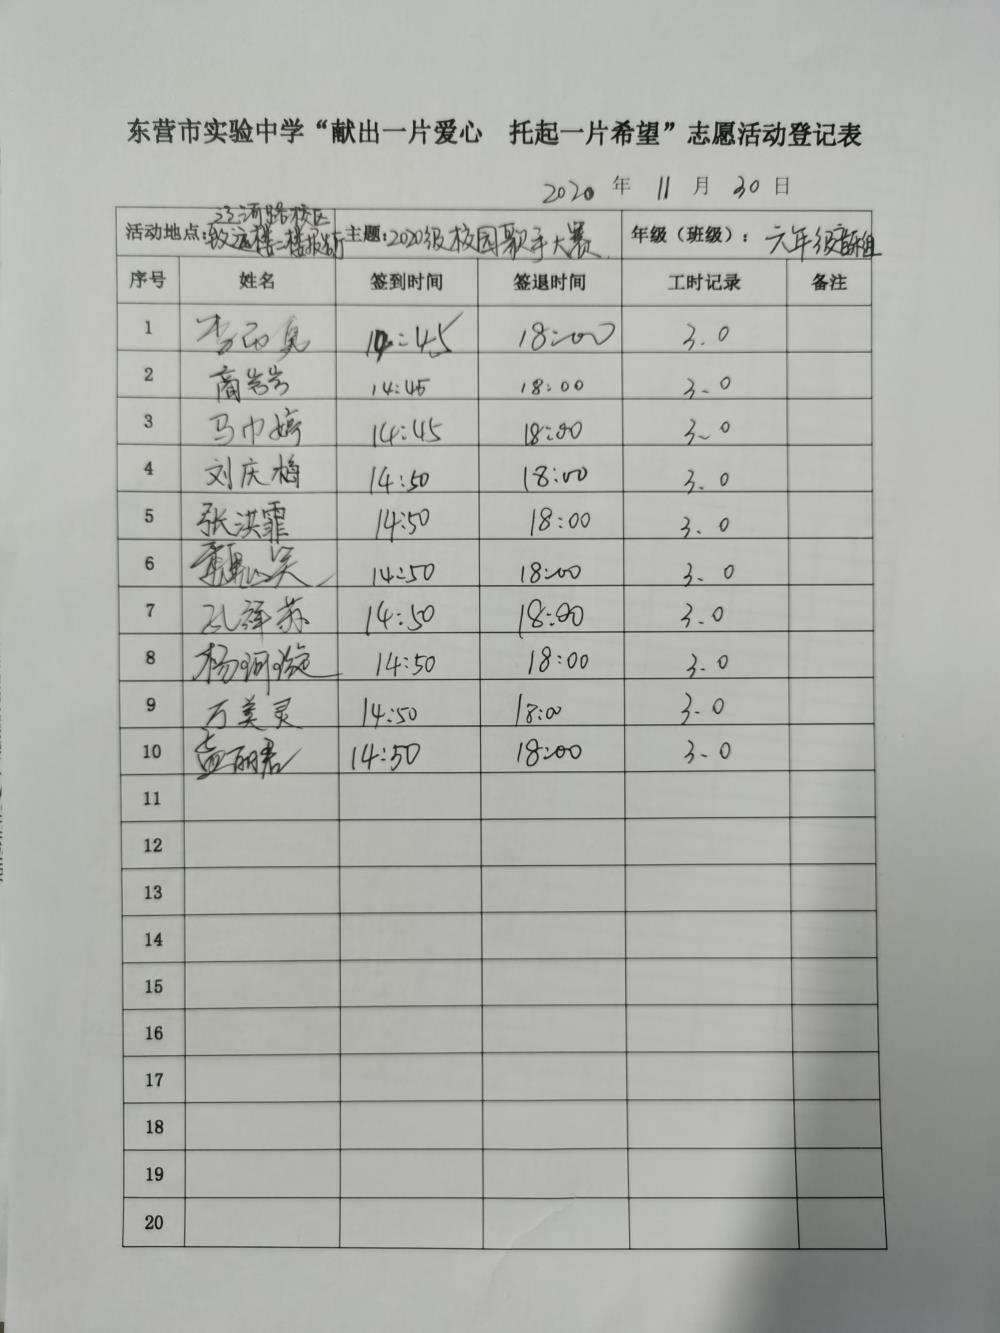 东营市实验中学“献出一片爱心 托起一片希望”志愿活动登记表
2020 年 11 月 30 日
活动地点: 河路校区 致远楼二楼报告厅 主题: 2020级校园歌手大赛 年级（班级）： 六年级音乐组
序号 姓名 签到时间 签退时间 工时记录 备注
1 李 14:45 18:00 3.0
2 商岩岩 14:45 18:00 3.0
3 马巾婷 14:45 18:00 3.0
4 刘庆梅 14:50 18:00 3.0
5 张洪霏 14:50 18:00 3.0
6 14:50 18:00 3.0
7 孔祥苏 14:50 18:00 3.0
8 杨河漩 14:50 18:00 3.0
9 万美灵 14:50 18:00 3.0
10 孟丽君 14:50 18:00 3.0
11
12
13
14
15
16
17
18
19
20